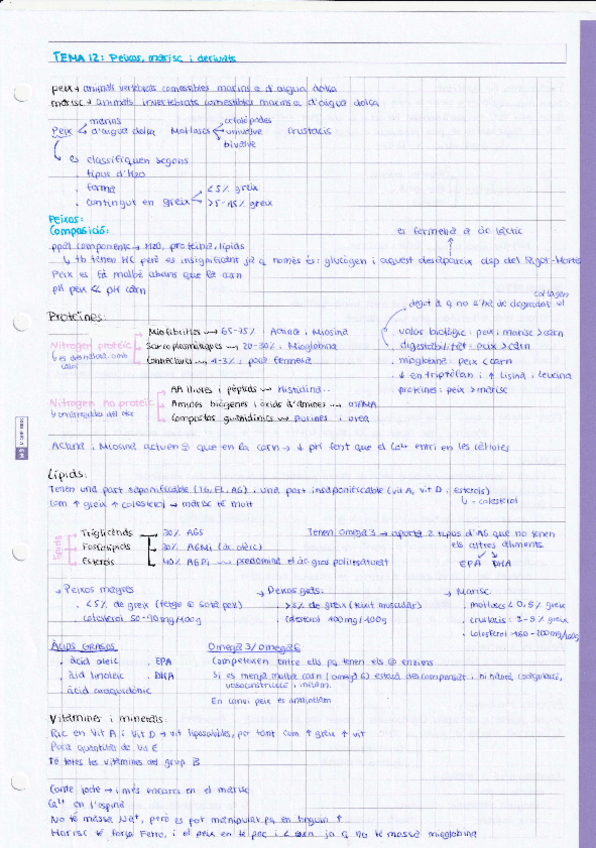 TEMA 12: Peixos, marisc i derivats
peix → animals vertebrats comestibles marins o d'aigua dolça
marisc → animals invertebrats comestibles marins o d'aigua dolça
Peix marins
d'aigua dolça
Moluscs cefalòpodes
univalve
bivalve
Crustacis
es classifiquen segons
. tipus d'H2O
. forma
. contingut en greix <5% greix
>5-15% greix
Peixos:
Composició:
ppal component → H2O, proteïna, lípids
↳ tb tenen HC però es insignificant ja q només és: glucògen i aquest desapareix dsp del Rigor-Mortis
es fermenta a àc làctic
Peix es fa malbé abans que la carn
pH peix << pH carn
Proteïnes:
Nitrogen protèic
Miofibril·les → 65-75%: Actina i Miosina
Sarcoplasmàtiques → 20-30%: Mioglobina
Conectives → 1-3%: poca fermesa
col·lagen
degut a q no s'ha de degradar el
valor biològic: peix i marisc > carn
digestabilitat: peix > carn
mioglobina: peix < carn
↓ en triptòfan i ↑ Lisina i Leucina
proteïnes: peix > marisc
Nitrogen no protèic
AA lliures i pèptids → Histidina...
Amines biògenes i òxids d'amines →
Compostos guanidínics → Purines i urea
Actina i Miosina actuen = que en la carn → ↓ pH fent que el Ca2+ entri en les cèl·lules
Lípids:
Tenen una part saponificable (TG, FL, AG) i una part insaponificable (vit A, vit D i esterols)
↳ colesterol
Com ↑ greix ↑ colesterol → marisc té molt
Lípids
Triglicèrids
Fosfolípids
Esterols
30% AGS
30% AGMI (àc oleic)
40% AGPI → predomina el àc gras poliinsaturat
Tenen omega 3 → aporta 2 tipus d'AG que no tenen
els altres aliments
EPA DHA
→ Peixos magres
. <5% de greix (fetge o sota pell)
. colesterol 50-90mg/100g
→ Peixos gras:
. >5% de greix (teixit muscular)
. colesterol 100mg/100g
→ Marisc
. moluscs < 0.5% greix
. crustacis: 2-5% greix
. colesterol 150-200mg/100g
Àcids grasos
. àcid oleic . EPA
. àcid linoleic . DHA
. àcid araquidònic
Omega 3/omega 6
Competeixen entre ells pq tenen els = enzims
Si es menja molta carn (omega 6) estarà descompensat i hi haurà coagulació,
vasoconstricció i inflam.
En canvi peix es antiinflam
Vitamines i minerals:
Ric en Vit A i Vit D → vit liposolubles, per tant com ↑ greix ↑ vit
Poca quantitat de vit E
Té totes les vitamines del grup B
Conté iode → i més encara en el marisc
Ca2+ en l'espina
No té massa Na+, però es pot manipular pq en tinguin ↑
Marisc té força Ferro, i el peix en té poc i < carn ja q no té massa mioglobina